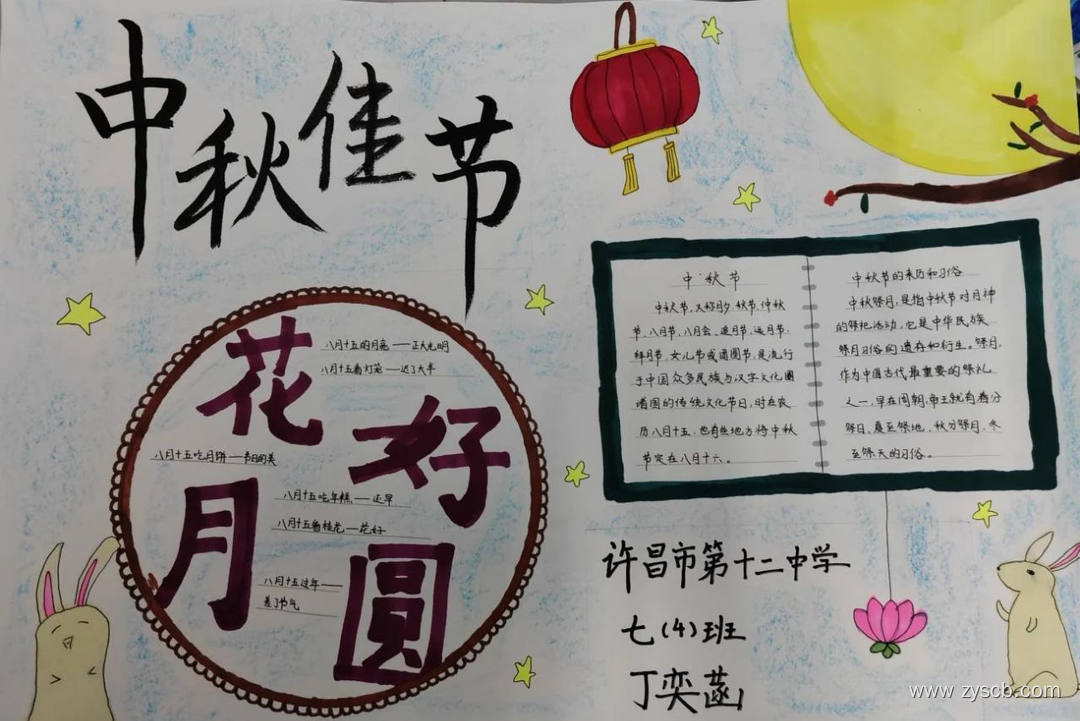 中秋佳节
花好月圆
八月十五的月亮——正大光明
八月十五看灯笼——迟了大半
八月十五吃月饼——节日的美
八月十五吃年糕——还早
八月十五看桂花——花好
八月十五过年——
差了节气
中秋节
中秋节,又称月夕、秋节、仲秋
节、八月节、八月会、追月节、玩月节、
拜月节、女儿节或团圆节,是流行
于中国众多民族与汉字文化圈
诸国的传统文化节日,时在农
历八月十五,也有些地方将中秋
节定在八月十六。
中秋节的来历和习俗
中秋祭月,是指中秋节对月神
的祭祀活动,它是中华民族
祭月习俗的遗存和衍生。祭月,
作为中国古代最重要的祭礼
之一,早在周朝,帝王就有春分
祭日、夏至祭地、秋分祭月、冬
至祭天的习俗。
许昌市第十二中学
七(4)班
丁奕菡
www.zyscb.com